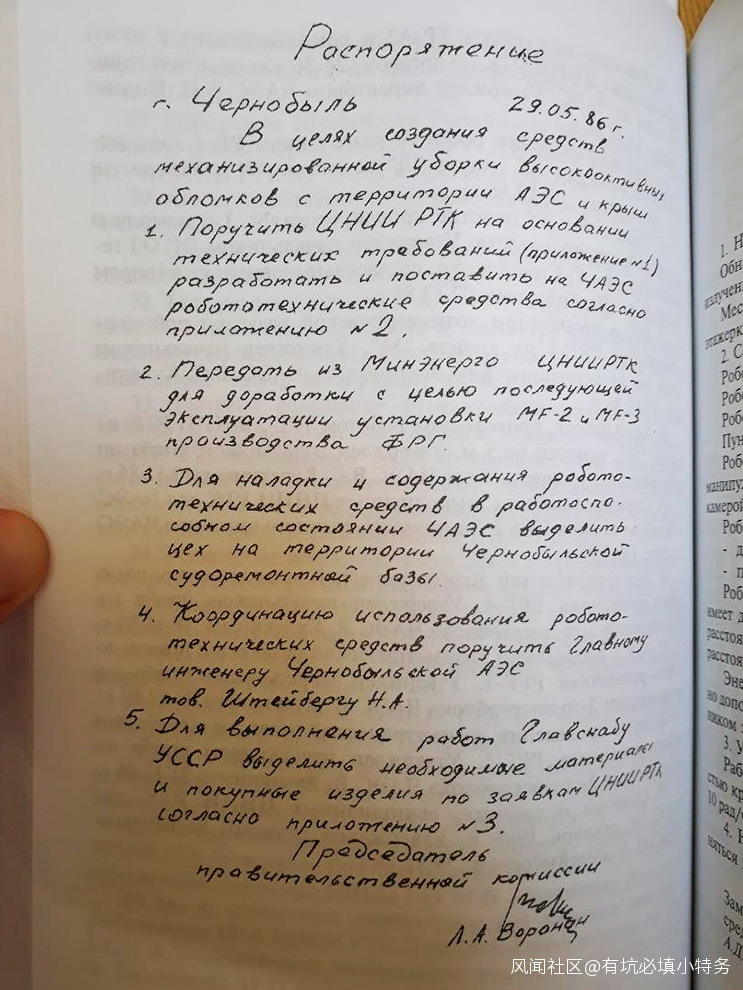 Распоряжение
г. Чернобыль 29.05.86 г.
В целях создания средств
механизированной уборки высокоактивных
обломков с территории АЭС и крыш
1. Поручить ЦНИИ РТК на основании
технических требований (приложение №1)
разработать и поставить на ЧАЭС
робототехнические средства согласно
приложению №2.
2. Передать из Минэнерго ЦНИИРТК
для доработки с целью последующей
эксплуатации установки MF-2 и MF-3
производства ФРГ.
3. Для наладки и содержания робото-
технических средств в работоспо-
собном состоянии ЧАЭС выделить
цех на территории Чернобыльской
судоремонтной базы.
4. Координацию использования робото-
технических средств поручить Главному
инженеру Чернобыльской АЭС
тов. Штейбергу Н.А.
5. Для выполнения работ Главснабу
УССР выделить необходимые материалы
и покупные изделия по заявкам ЦНИИРТК
согласно приложению №3.
Председатель
правительственной комиссии
Л.А. Воронин
1. Н
Обн
излучен
Мес
этажерк
2. С
Робо
Робо
Робо
Пун
Роб
манипул
камерой
Роб
- д
- п
Роб
имеет д
расстоя
расстоя
Эне
но допо
ником
3. У
Раб
стью кр
10 рад/
4. Н
няться
Зам
сред
А.Д
风闻社区@有坑必填小特务